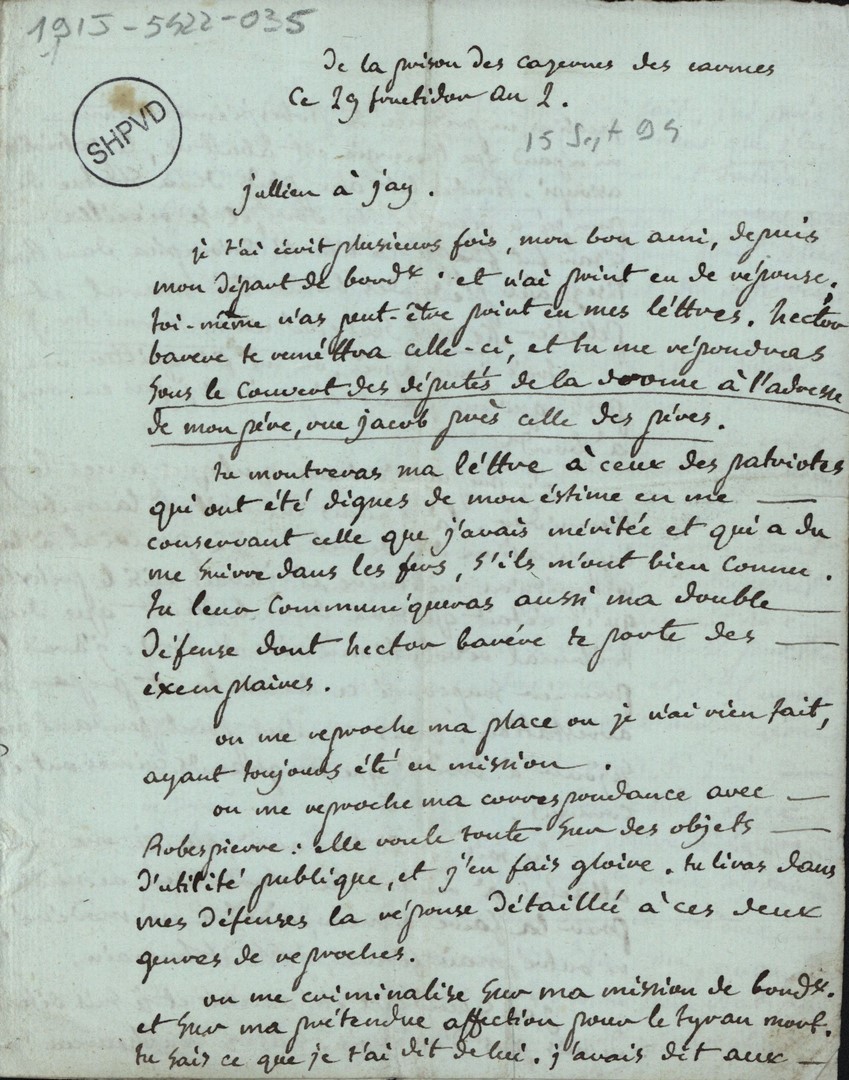 191J-5422-035
SHPVD
De la prison des cazernes des carmes
Ce 29 fructidor an 2.
15 Sept 94
jullien à jay.
je t'ai écrit plusieurs fois, mon bon ami, depuis
mon départ de bordx. et n'ai point eu de réponse.
toi-même n'as peut-être point eu mes léttres. hector
barere te reméttra celle-ci, et tu me répondras
sous le couvert des députés de la drome à l'adresse
de mon père, rue jacob près celle des pères.
tu montreras ma léttre à ceux des patriotes
qui ont été dignes de mon éstime en me
conservant celle que j'avais méritée et qui a du
me suivre dans les fers, s'ils m'ont bien connu.
tu leur communiqueras aussi ma double
défense dont hector barére te porte des
éxemplaires.
on me reproche ma place ou je n'ai rien fait,
ayant toujours été en mission.
on me reproche ma correspondance avec
Robespierre : elle roule toute sur des objets
d'utilité publique, et j'en fais gloire. tu liras dans
mes défenses la réponse détaillée à ces deux
genres de reproches.
on me criminalise sur ma mission de bordx.
et sur ma prétendue affection pour le tyran mort.
tu sais ce que je t'ai dit de lui. j'avais dit aux